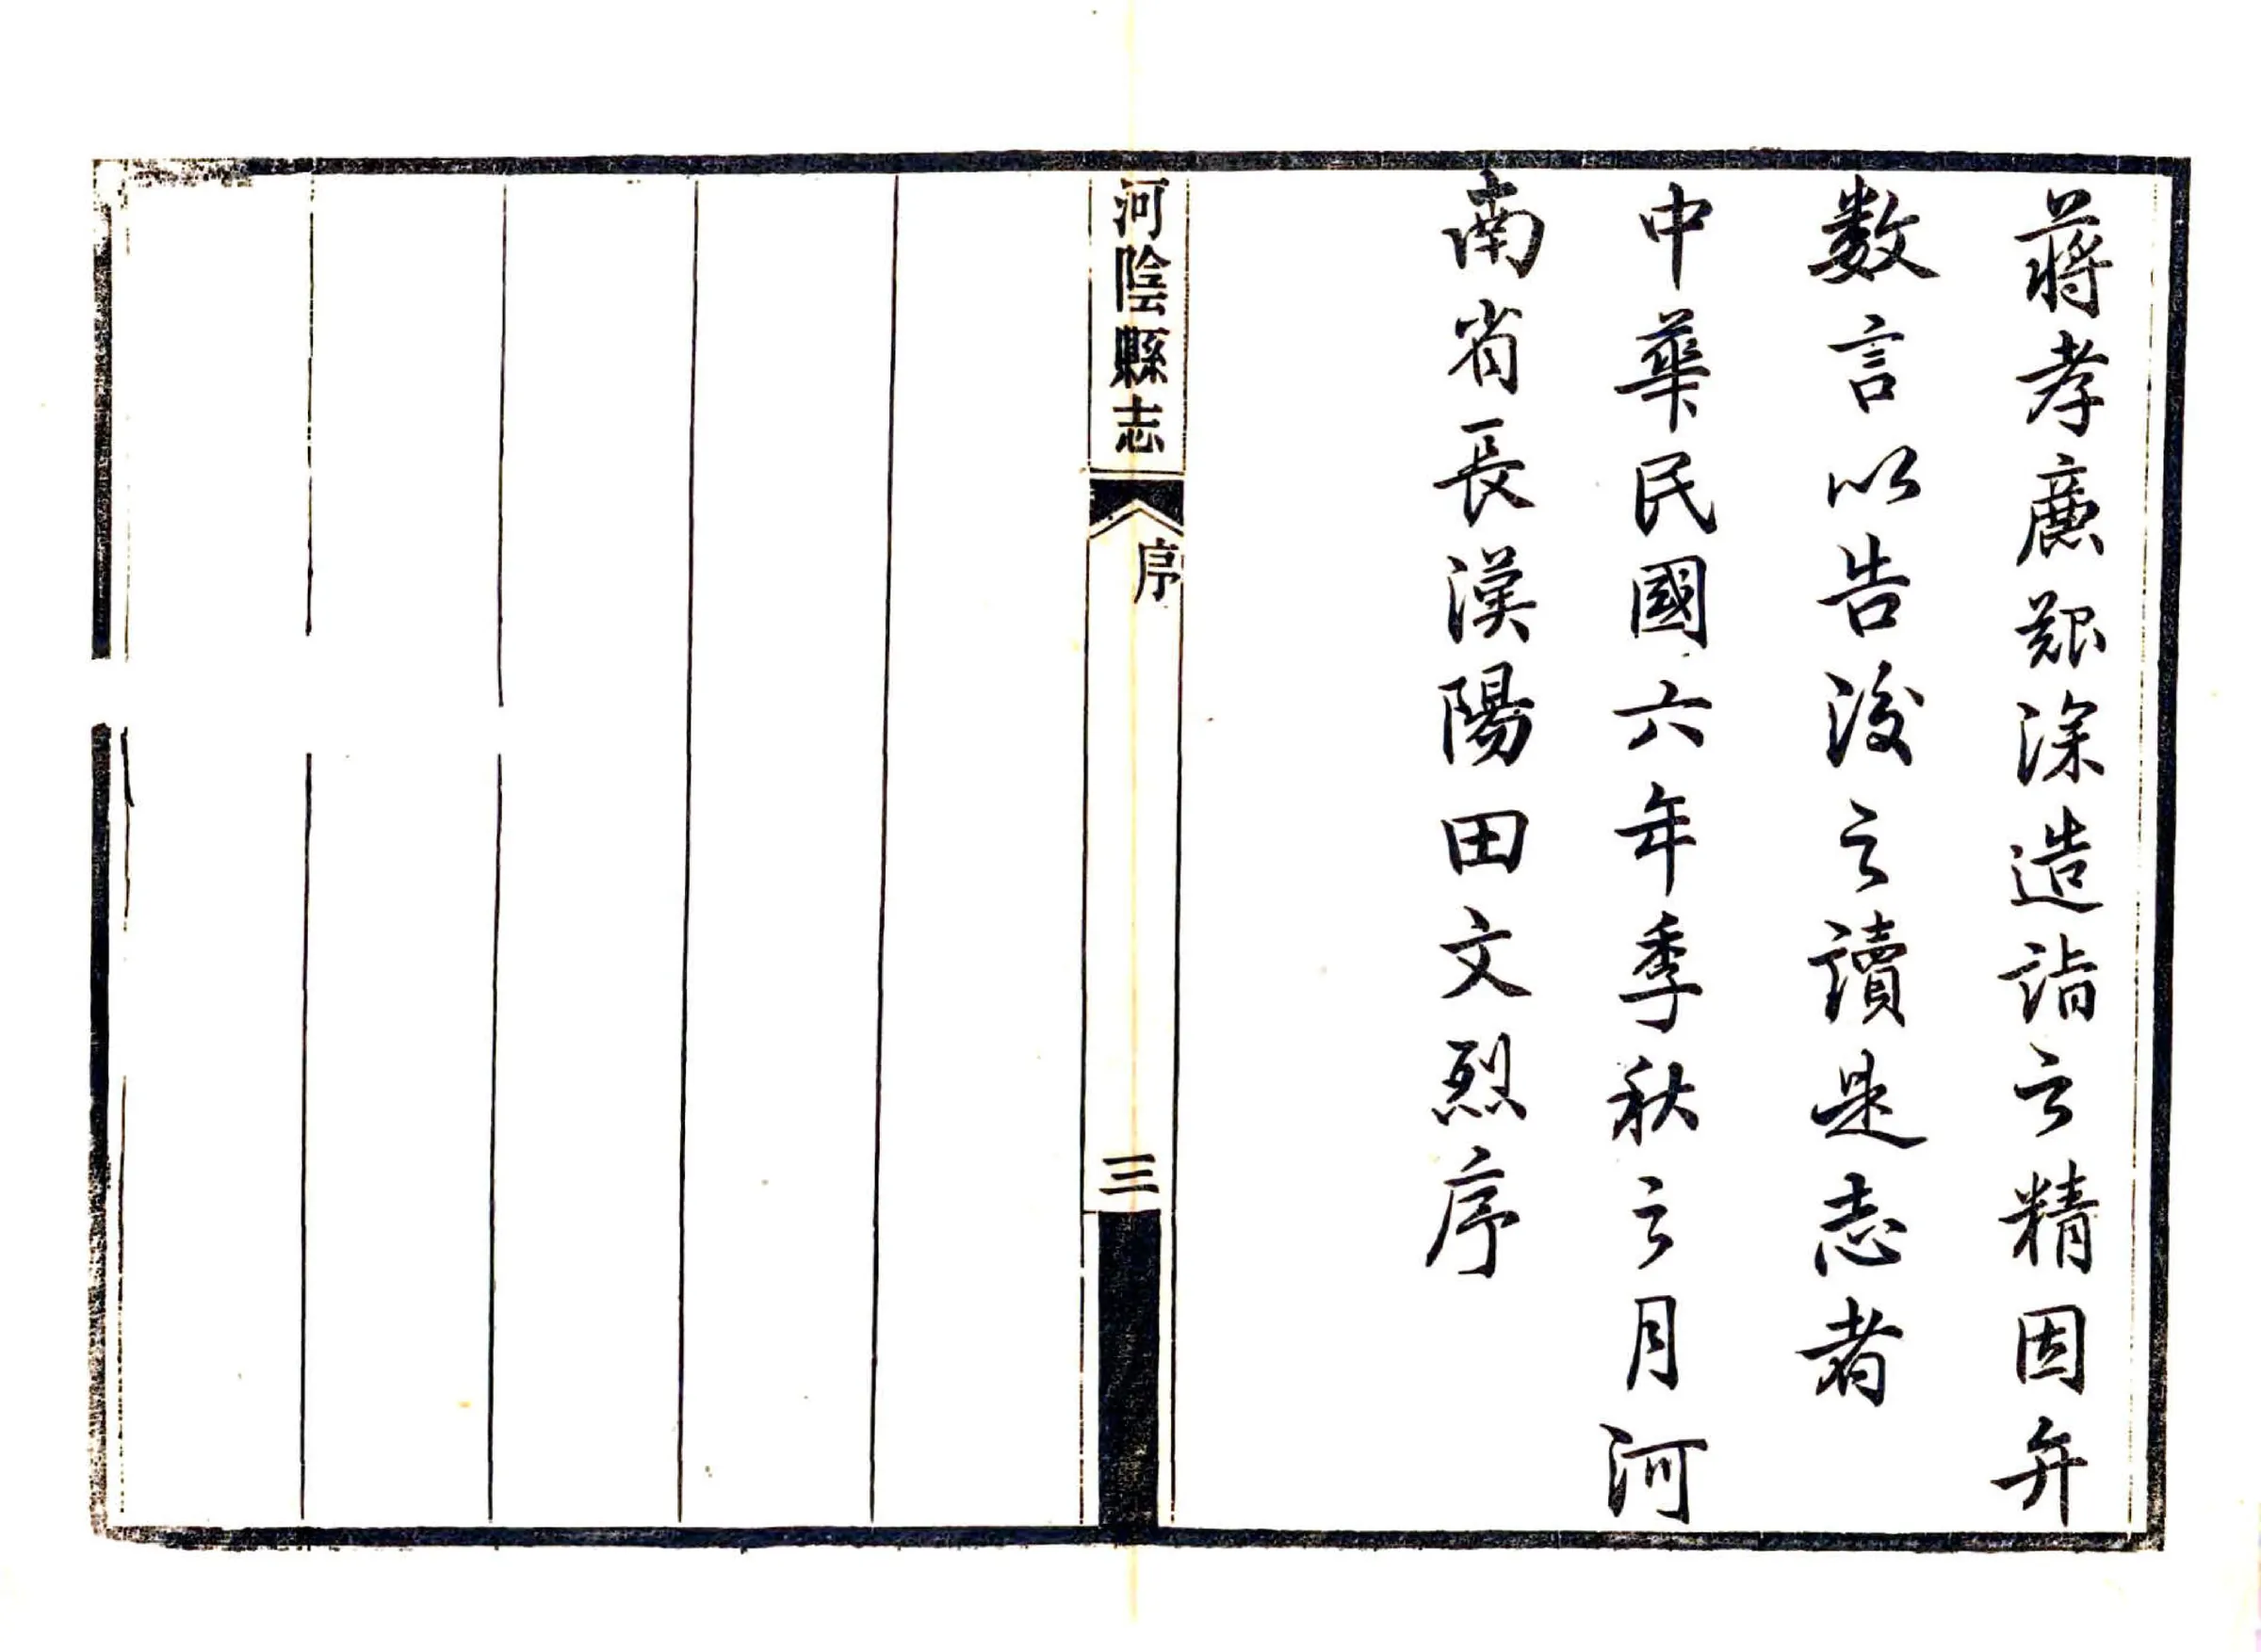 蔣孝廉艱深造詣之精因弁
數言以告後之讀是志者
中華民國六年季秋之月河
南省長漢陽田文烈序
河陰縣志
序
三